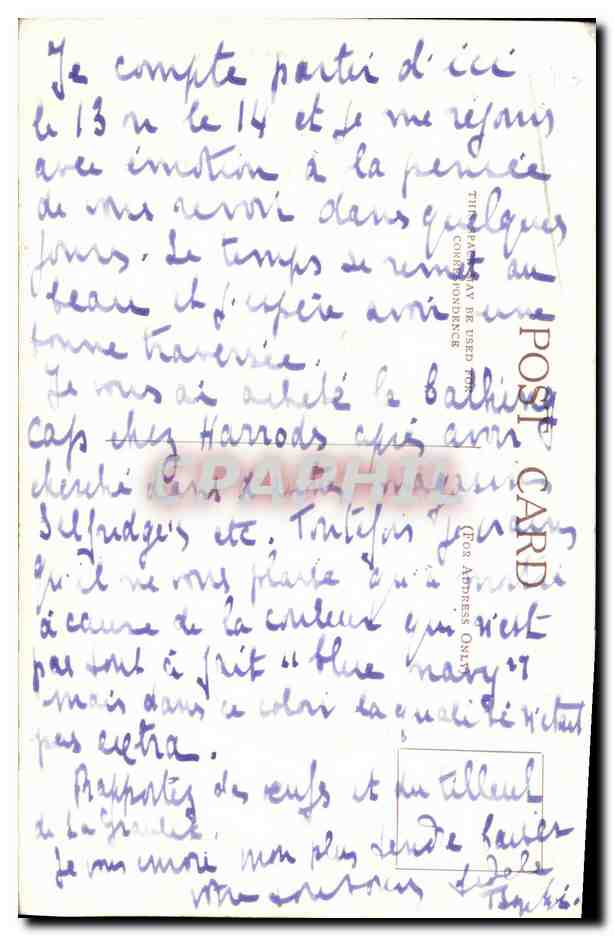 Je compte partir d'ici
le 13 ou le 14 et je me réjouis
avec émotion à la pensée
de vous revoir dans quelques
jours. Le temps se remet au
beau et j'espère avoir une
bonne traversée.
Je vous ai acheté le bathing
cap chez Harrods après avoir
cherché dans d'autres magasins
Selfridge's etc. Toutefois je crains
qu'il ne vous plaise qu'à moitié
à cause de la couleur qui n'est
pas tout à fait "blue navy"
mais dans ce coloris la qualité n'était
pas extra.
Rapportez des œufs et du tilleul
de La
Je vous envoie mon plus tendre baiser
votre toujours fidèle
THIS SPACE MAY BE USED FOR
CORRESPONDENCE
POST CARD
(FOR ADDRESS ONLY)
CPAPHIL